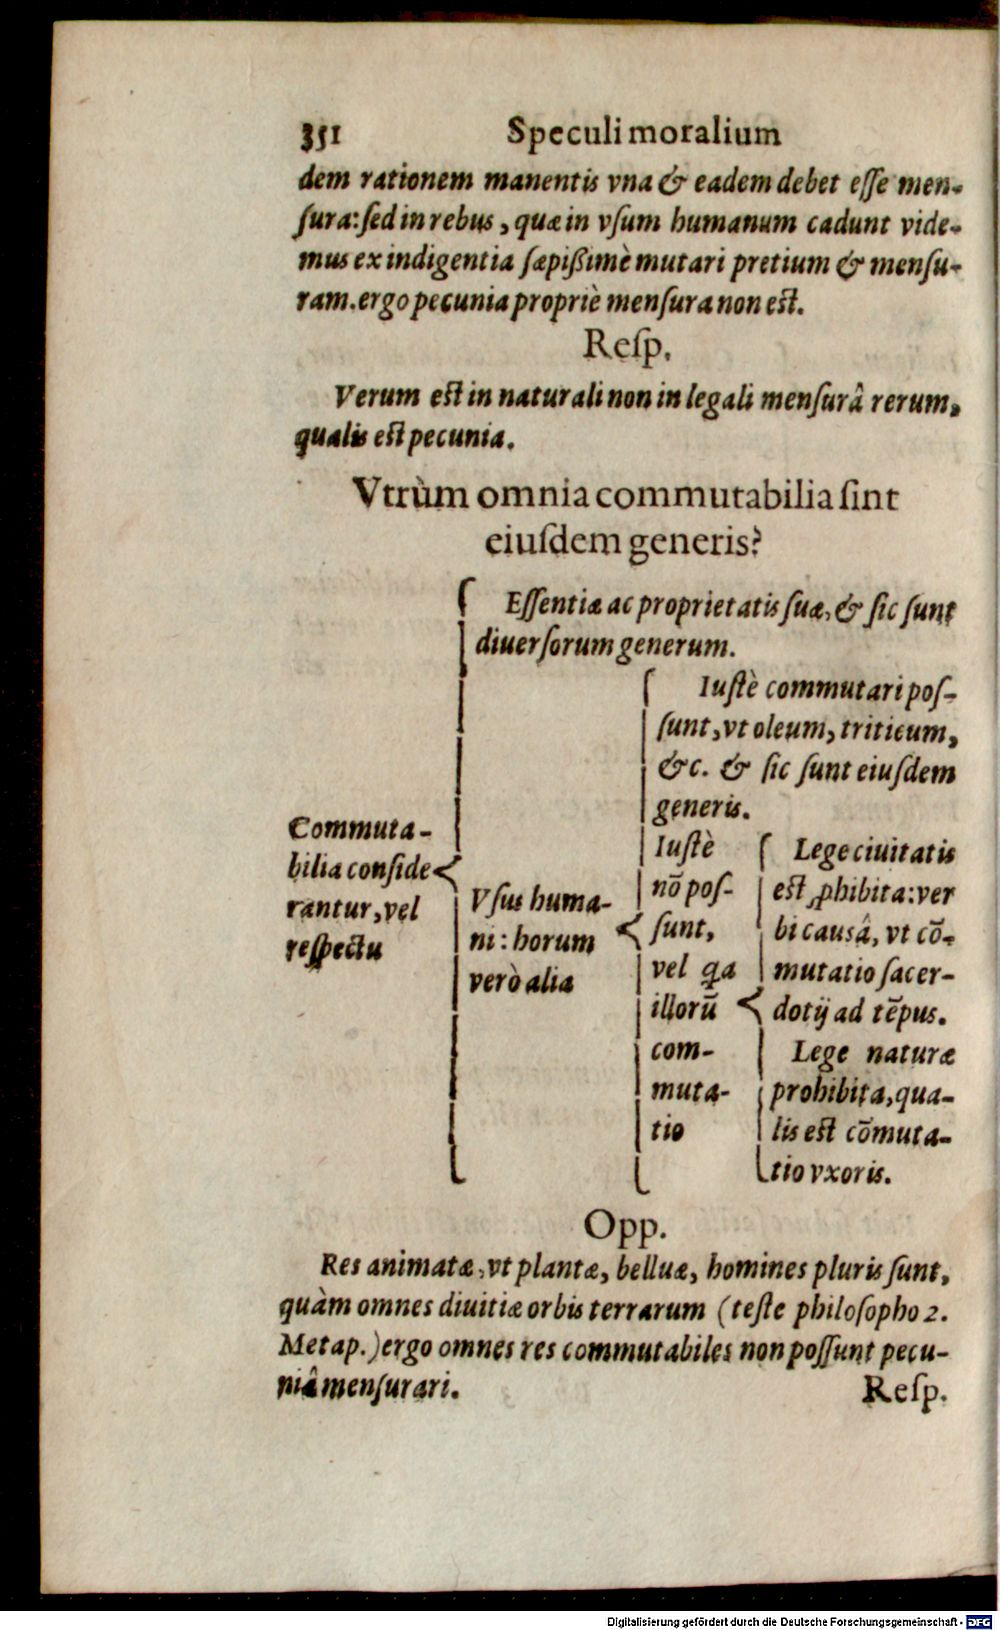 351 Speculi moralium
dem rationem manentis vna & eadem debet eſſe men-
ſura: ſed in rebus, quæ in vſum humanum cadunt vide-
mus ex indigentia ſæpißimè mutari pretium & menſu-
ram. ergo pecunia propriè menſura non est.
Reſp.
Verum est in naturali non in legali menſurâ rerum,
qualis est pecunia.
Vtrùm omnia commutabilia ſint
eiuſdem generis?
Eſſentiæ ac proprietatis ſuæ, & ſic ſunt
diuerſorum generum.
Commuta-
bilia conſide
rantur, vel
reſpectu
Vſus huma-
ni: horum
verò alia
Iuſtè commutari poſ-
ſunt, vt oleum, triticum,
&c. & ſic ſunt eiuſdem
generis.
Iuſtè
nō poſ-
ſunt,
vel qa
illorū
com-
muta-
tio
Lege ciuitatis
est ꝓhibita: ver
bi causâ, vt cō-
mutatio ſacer-
dotij ad tēpus.
Lege naturæ
prohibita, qua-
lis est cōmuta-
tio vxoris.
Opp.
Res animatæ, vt plantæ, belluæ, homines pluris ſunt,
quàm omnes diuitiæ orbis terrarum (teſte philoſopho 2.
Metap.) ergo omnes res commutabiles non poſſunt pecu-
niâ menſurari. Reſp.
Digitalisierung gefördert durch die Deutsche Forschungsgemeinschaft - DFG